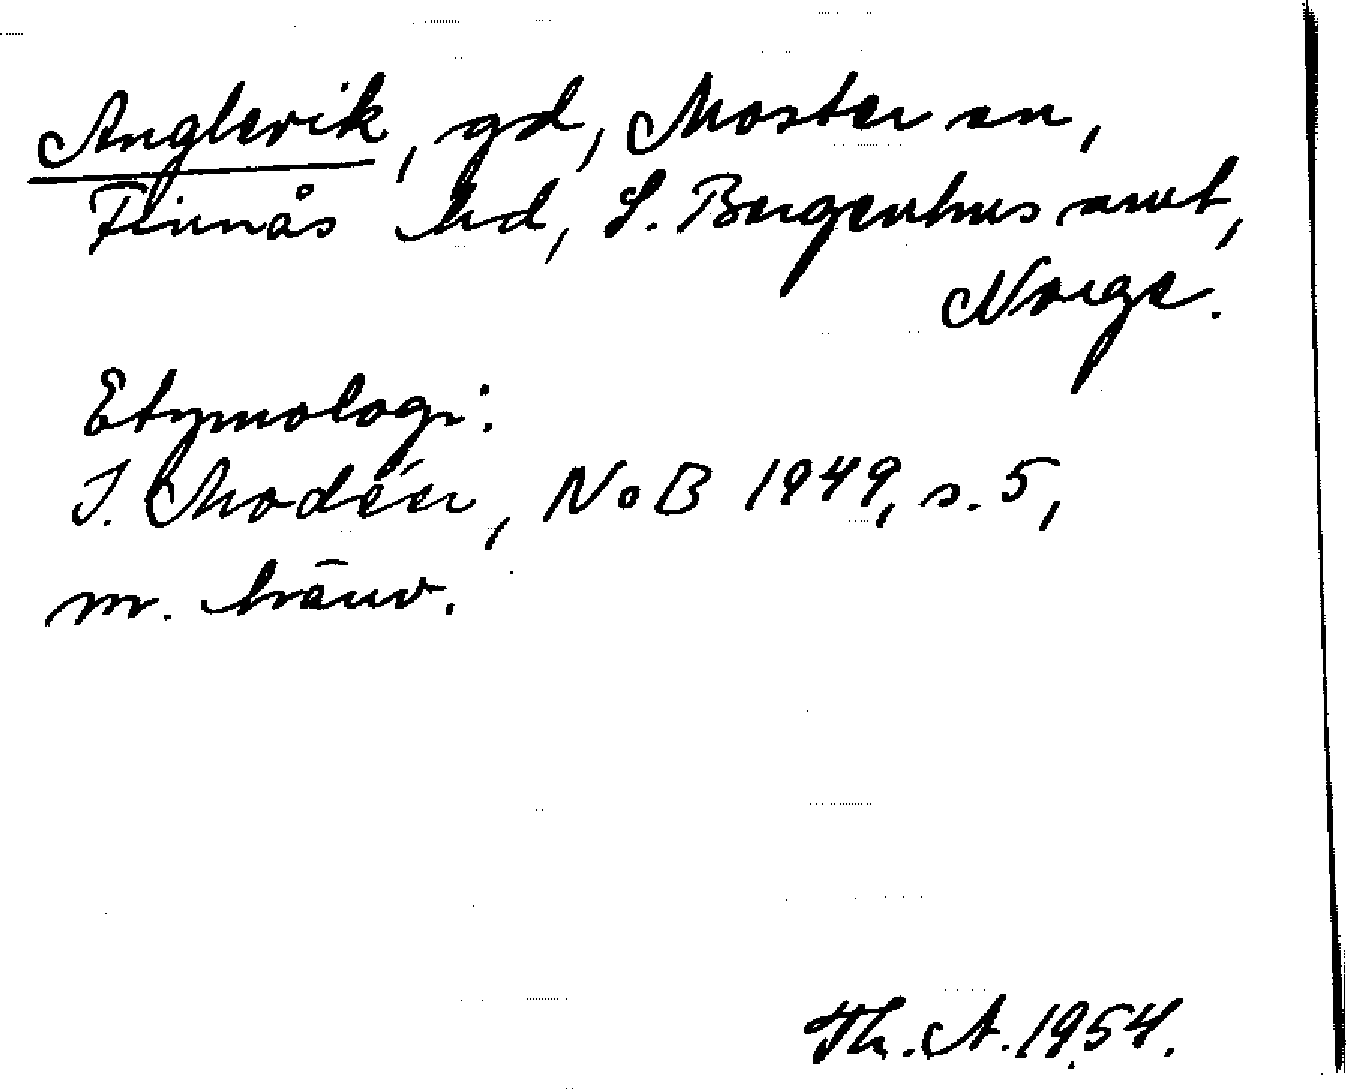 Anglevik, gd, Moster sn,
Finnås hd, S. Bergenhus amt,
Norge.
Etymologi:
I. Modéer, NoB 1949, s. 5,
m. hänv.
Th. A. 1954.